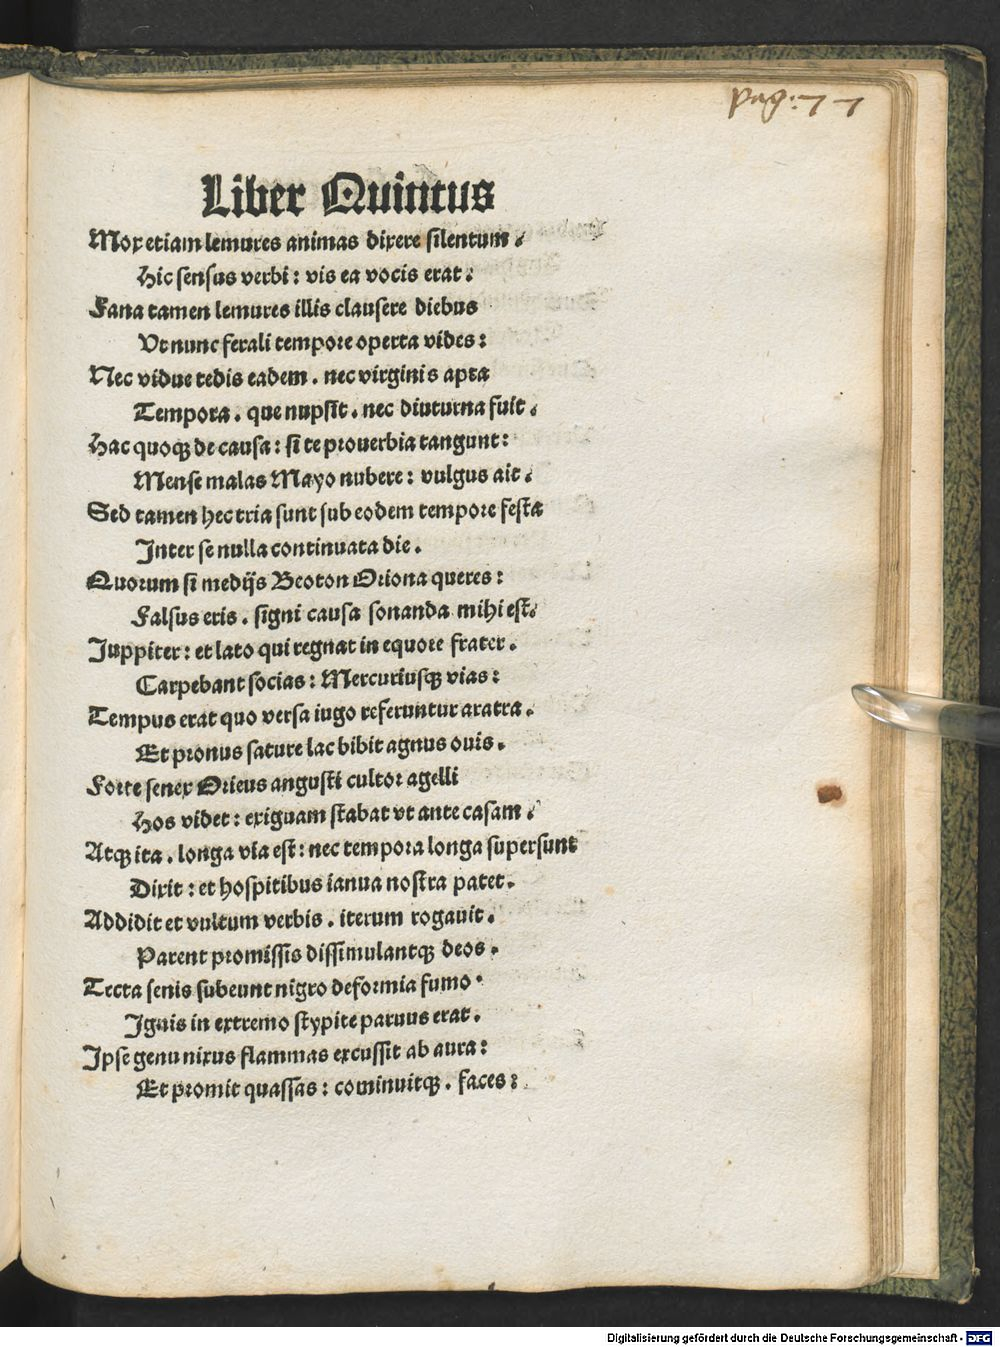 pag: 77
Liber Quintus
Mox etiam lemures animas dixere silentum.
Hic sensus verbi: vis ea vocis erat.
Fana tamen lemures illis clausere diebus
Vt nunc ferali tempore operta vides:
Nec vidue tedis eadem. nec virginis apta
Tempora. que nupsit. nec diuturna fuit.
Hac quoqꝫ de causa: si te prouerbia tangunt:
Mense malas Mayo nubere: vulgus ait.
Sed tamen hec tria sunt sub eodem tempore festa
Inter se nulla continuata die.
Quorum si medijs Beoton Oriona queres:
Falsus eris. signi causa sonanda mihi est.
Juppiter: et lato qui regnat in equore frater.
Carpebant socias: Mercuriusqꝫ vias:
Tempus erat quo versa iugo referuntur aratra.
Et pronus sature lac bibit agnus ouis.
Forte senex Orieus angusti cultor agelli
Hos videt: exiguam stabat vt ante casam.
Atqꝫ ita. longa via est: nec tempora longa supersunt
Dixit: et hospitibus ianua nostra patet.
Addidit et vultum verbis. iterum rogauit.
Parent promissis dissimulantqꝫ deos.
Tecta senis subeunt nigro deformia fumo.
Ignis in extremo stypite paruus erat.
Ipse genu nixus flammas excussit ab aura:
Et promit quassas: cominuitqꝫ. faces:
Digitalisierung gefördert durch die Deutsche Forschungsgemeinschaft - DFG